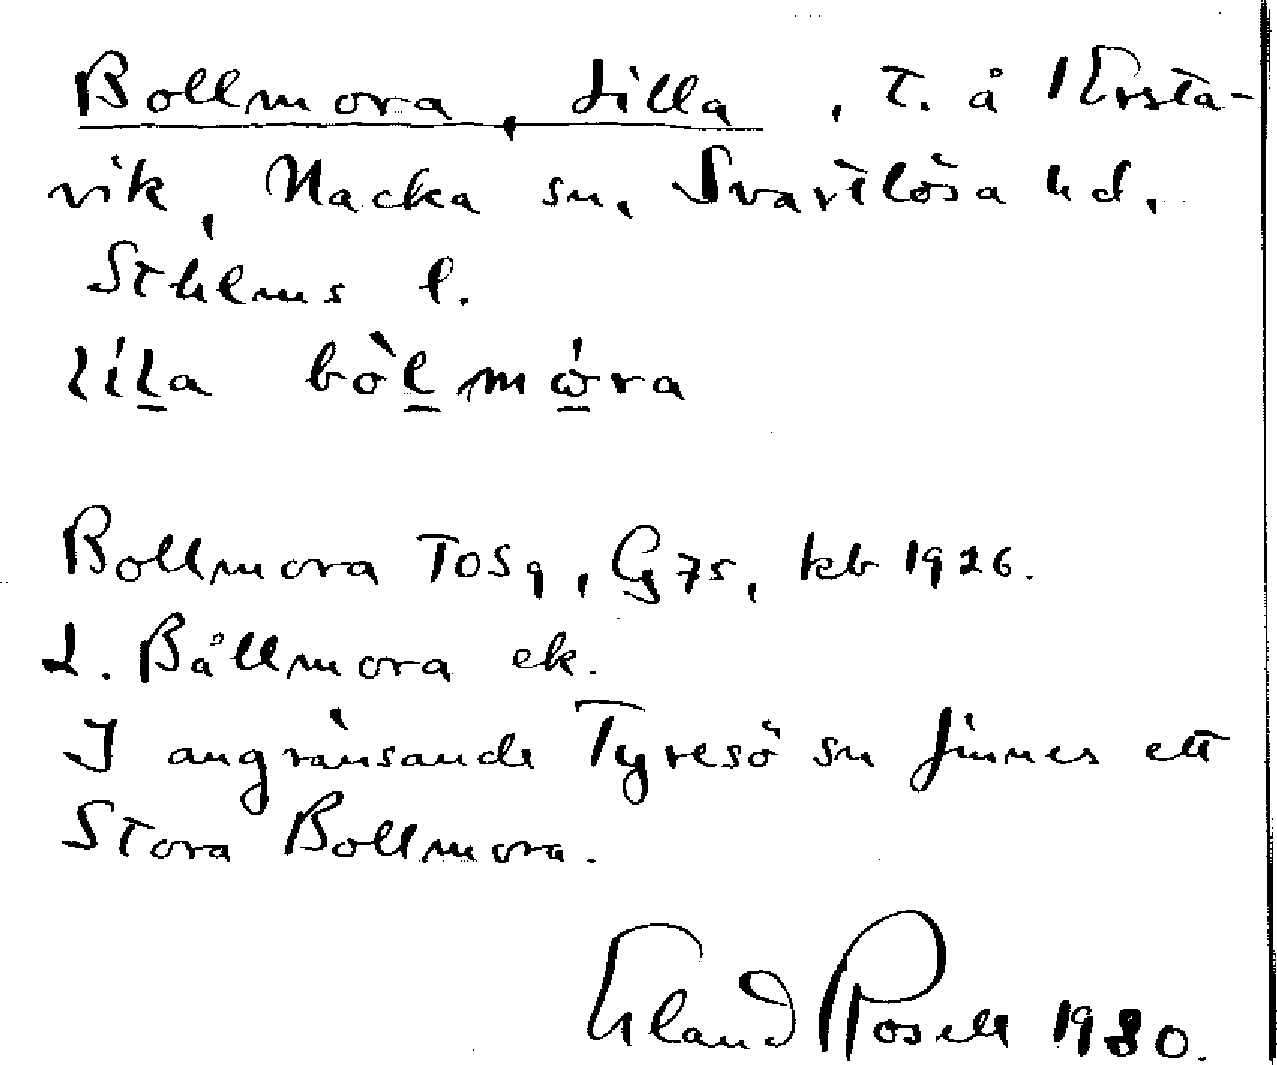 Bollmora, Lilla, t. å Ersta-
vik, Nacka sn, Svartlösa hd,
Sthlms l.
líla bòlmóra
Bollmora TOSq, Gj 75, kb 1926.
L. Bållmora ek.
I angränsande Tyresö sn finnes ett
Stora Bollmora.
Erland Rosell 1980.